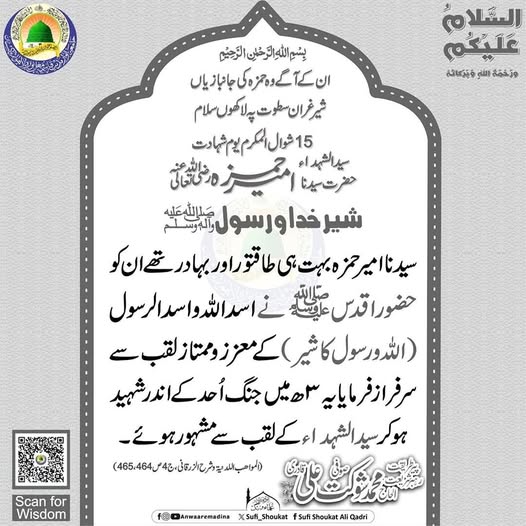 السلام
علیکم
ورحمۃ اللہ وبرکاتہ
بسم اللہ الرحمٰن الرحیم
ان کے آگے وہ حمزہ کی جانبازیاں
شیر غران سطوت پہ لاکھوں سلام
15 شوال المکرم یوم شہادت
سید الشہداء
حضرت سیدنا امیر حمزہ رضی اللہ تعالیٰ عنہ
شیر خدا و رسول صلی اللہ علیہ وآلہ وسلم
سیدنا امیر حمزہ بہت ہی طاقتور اور بہادر تھے ان کو
حضور اقدس صلی اللہ علیہ وسلم نے اسد اللہ و اسد الرسول
(اللہ و رسول کا شیر) کے معزز و ممتاز لقب سے
سرفراز فرمایا یہ ۳ھ میں جنگ اُحد کے اندر شہید
ہو کر سید الشہداء کے لقب سے مشہور ہوئے۔
(المواھب اللدنیۃ و شرح الزرقانی، ج4 ص 465،464)
صوفی محمد شوکت علی قادری
Scan for
Wisdom
@Anwaaremadina X Sufi_Shoukat f Sufi Shoukat Ali Qadri